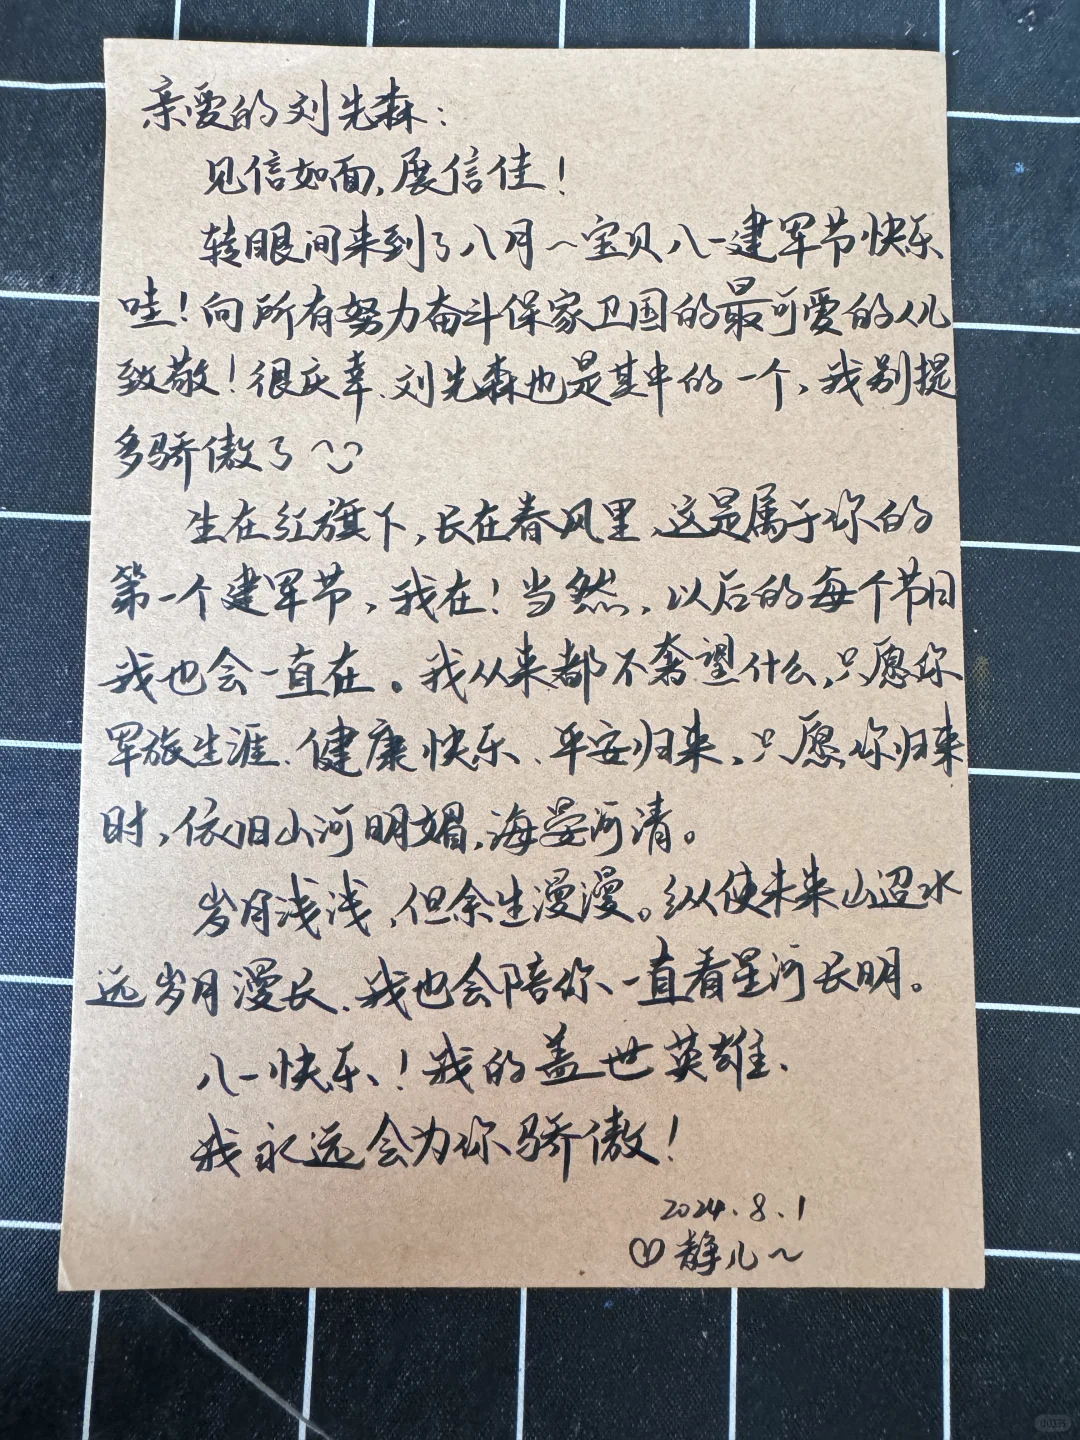 亲爱的刘先森：
见信如面，展信佳！
转眼间来到了八月～宝贝八一建军节快乐
哇！向所有努力奋斗保家卫国的最可爱的人儿
致敬！很庆幸、刘先森也是其中的一个，我别提
多骄傲了
生在红旗下，长在春风里，这是属于你的
第一个建军节，我在！当然，以后的每个节日
我也会一直在。我从来都不奢望什么，只愿你
军旅生涯、健康快乐、平安归来，只愿你归来
时，依旧山河明媚，海晏河清。
岁月浅浅，但余生漫漫。纵使未来山迢水
远岁月漫长、我也会陪你、一直看星河长明。
八一快乐、！我的盖世英雄、
我永远会为你骄傲！
2024.8.1
♡静儿～